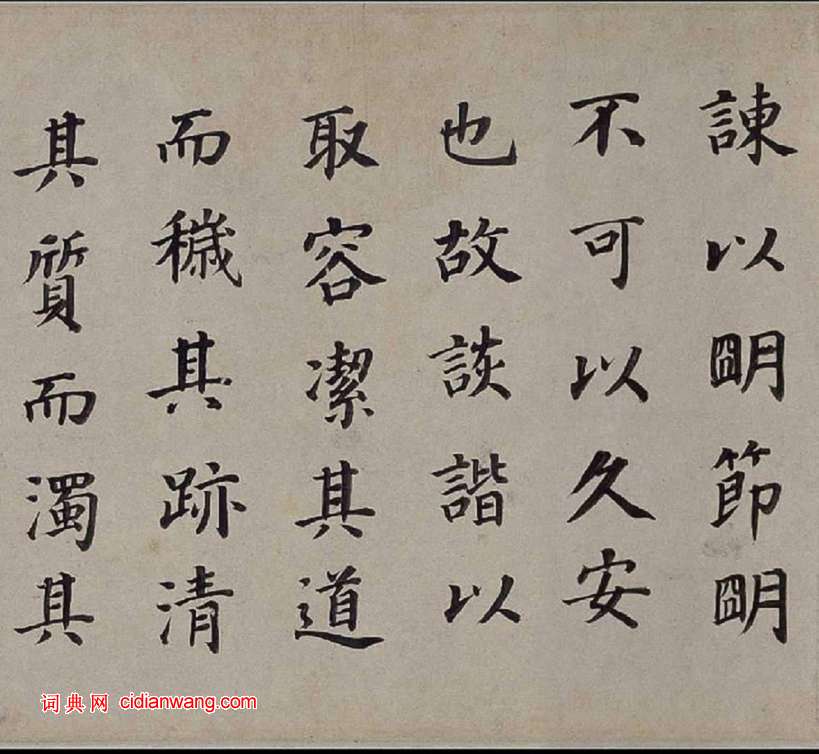 諫以朙節朙
不可以久安
也故詼諧以
取容潔其道
而穢其跡清
其質而濁其
词典网 cidianwang.com